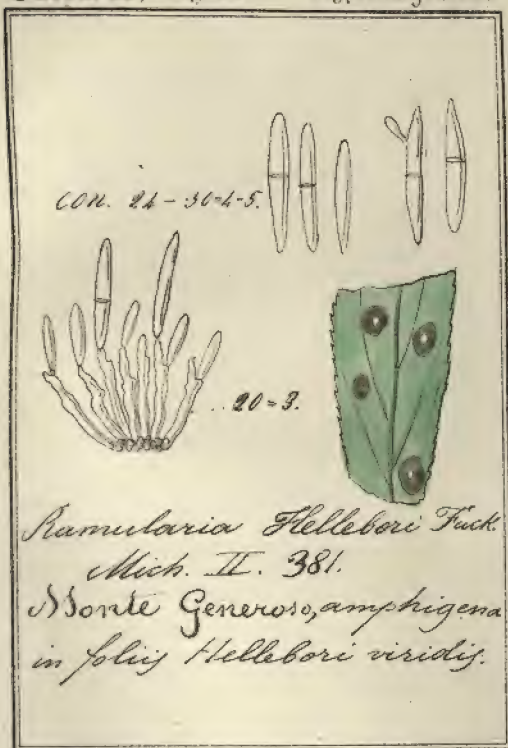 CON. 24-30=4-5.
20=3.
Ramularia Hellebori Fuck.
Mich. II. 381.
Monte Generoso, amphigena
in foliis Hellebori viridis.